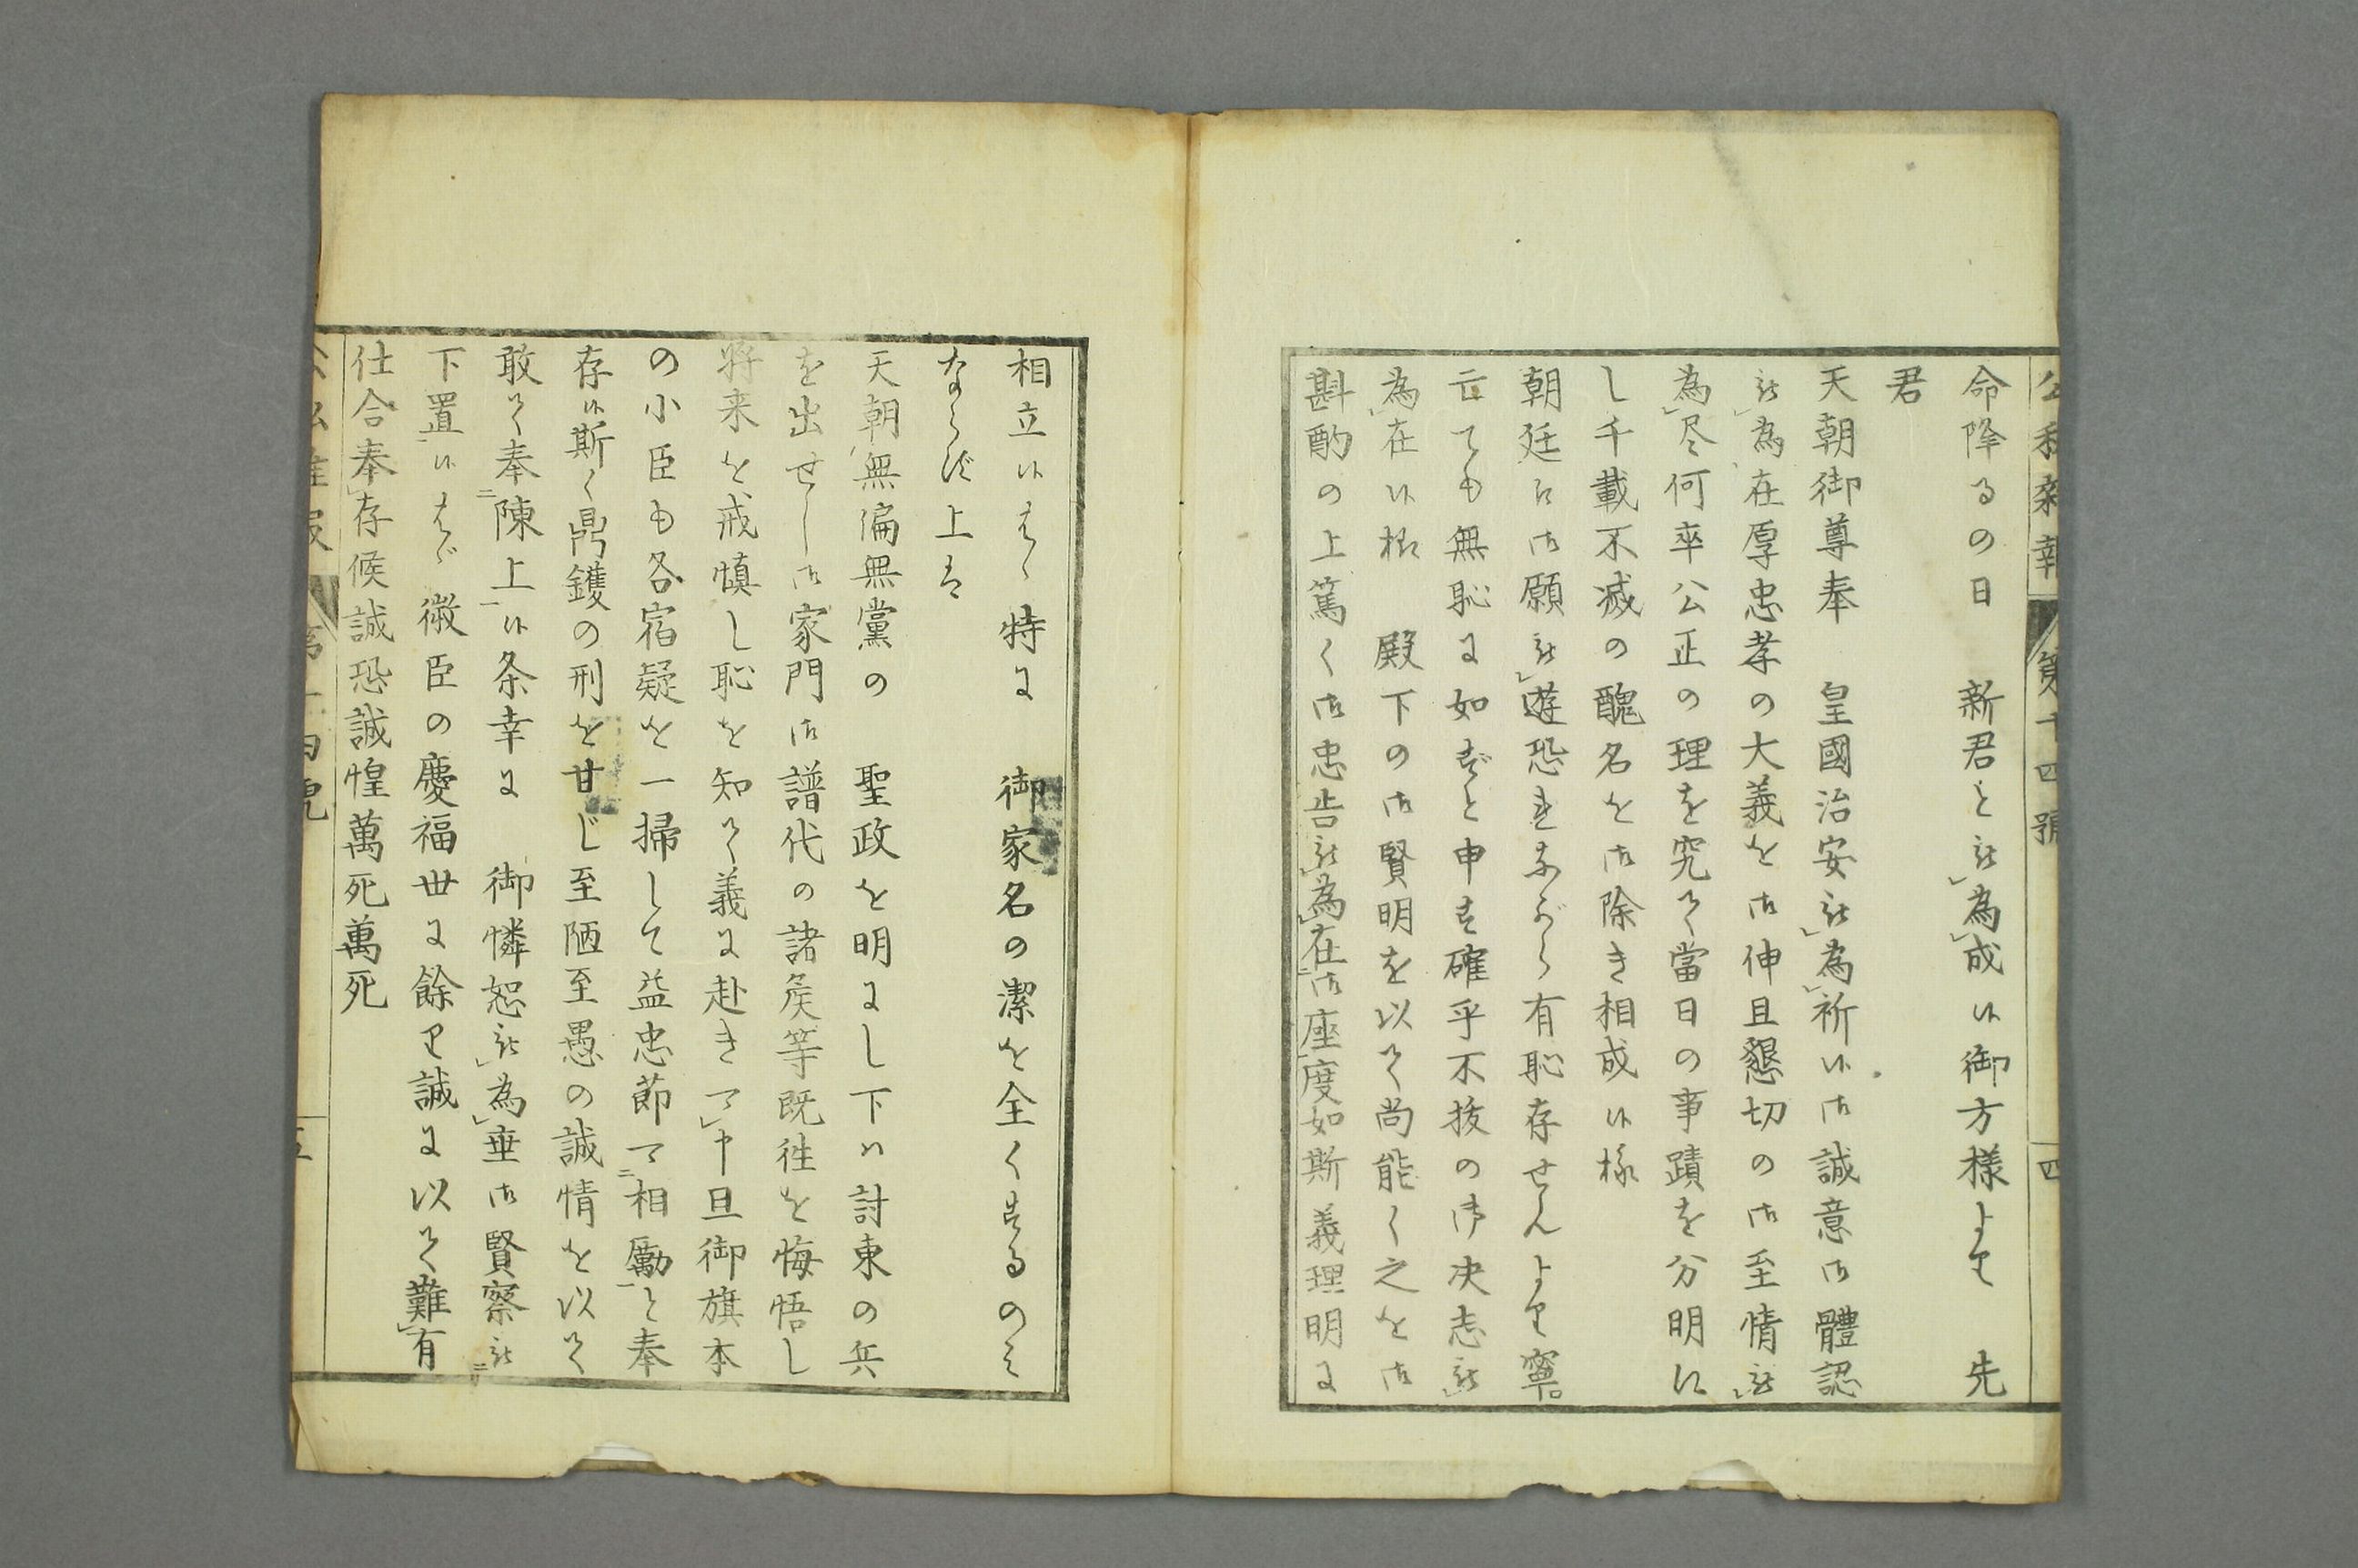 公私雜報 第十四號 四
命降るの日　新君と被為成候御方様より　先
君
天朝御尊奉　皇國治安被為祈候御誠意御體認
被為在厚忠孝の大義を御伸且懇切の御至情被
為尽何卒公正の理を究て當日の事蹟を分明に
し千載不滅の醜名を御除き相成候様
朝廷に御願被遊恐れながら有恥存せんより寧
亡ても無恥に如ずと申す確乎不抜の御决志被
為在候様　殿下の御賢明を以て尚能く之を御
斟酌の上篤く御忠告被為在御座度如斯義理明に
相立候はゞ特に　御家名の潔を全くするのミ
ならず上は
天朝無偏無黨の　聖政を明にし下ハ討東の兵
を出せし御家門御譜代の諸矦等既徃を悔悟し
将来を戒慎し恥を知て義に赴き可申且御旗本
の小臣も各宿疑を一掃して益忠節可相勵と奉
存候斯く鼎鑊の刑を甘じ至陋至愚の誠情を以て
敢て奉陳上候条幸に　御憐恕被為垂御賢察被
下置候はゞ　微臣の慶福世に餘り誠に以て難有
仕合奉存候誠恐誠惶萬死萬死